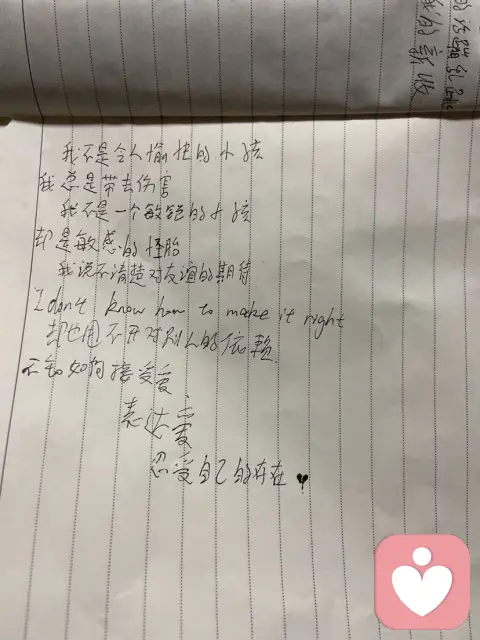 我不是令人愉快的小孩
我总是带去伤害
我不是一个敏锐的小孩
却是敏感的怪胎
我说不清楚对友谊的期待
I don't know how to make it right
却也甩不开对别人的依赖
不知如何接受爱、
表达爱
忍受自己的存在
我的新收